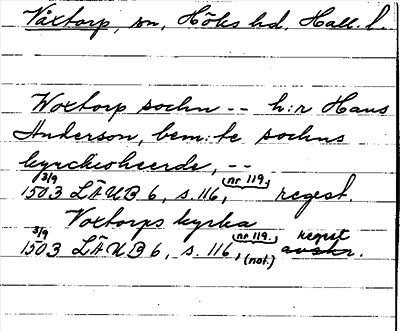 Våxtorp, sn, Höks hd, Hall. l.
Woxtorp sochn -- h:r Hans
Anderson, bem:te sochns
kyrckioheerde, --
3/9 1503 LÄUB 6, s. 116, nr 119, regest.
Voxtorps kyrka
3/9 1503 LÄUB 6, s. 116, nr 119. (not.) regest avskr.